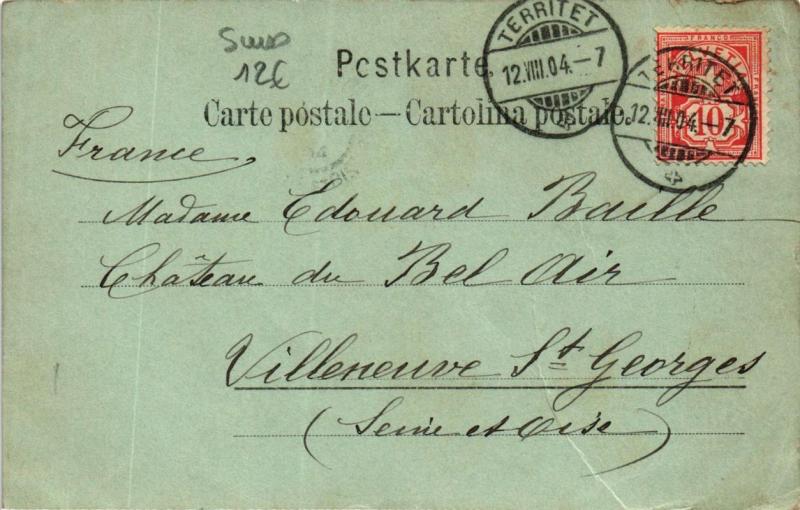 Suisse
12€
Postkarte.
Carte postale — Cartolina postale.
TERRITET
12.VIII.04.–7
FRANCO
HELVETIA
10
TERRITET
12.VIII.04.–7
France.
Madame Edouard Baille
Château du Bel Air
Villeneuve St Georges
(Seine et Oise)